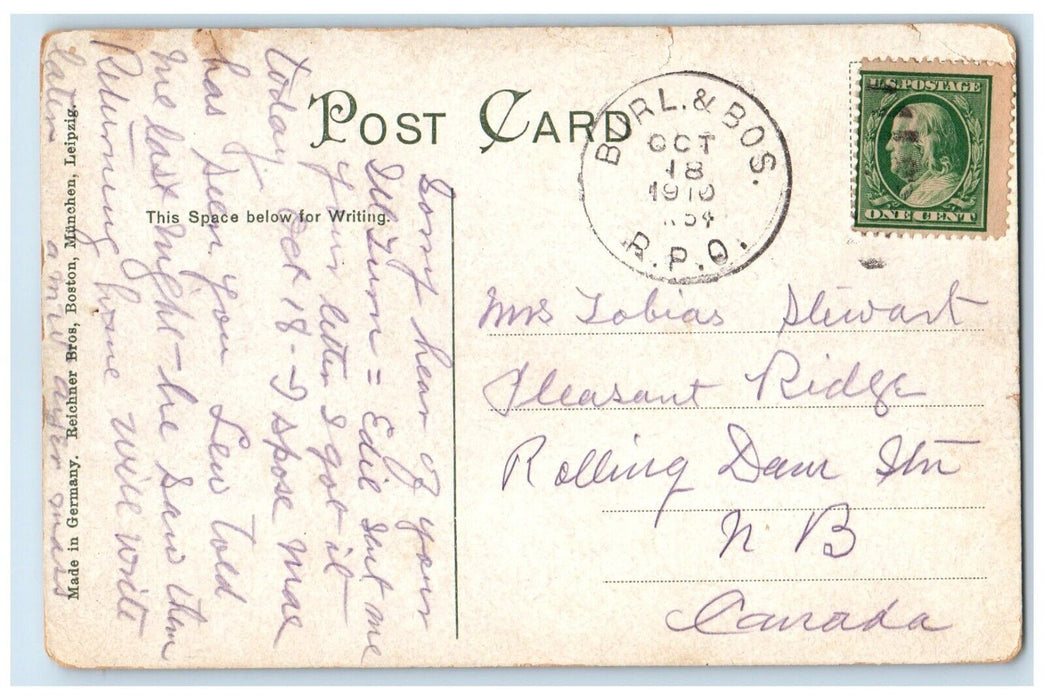 POST CARD
BURL. & BOS.
OCT
18
1910
R.P.O.
U.S. POSTAGE
ONE CENT
This Space below for Writing.
Made in Germany. Reichner Bros, Boston, München, Leipzig.
Sorry hear of your
Ill Turn = Edie sent me
your letter I got it
today Oct 18 - I spose Mae
has seen you Lew told
me last night - he saw them
Returning home will write
later
Mrs Tobias Stewart
Pleasant Ridge
Rolling Dam Stn
N B
Canada